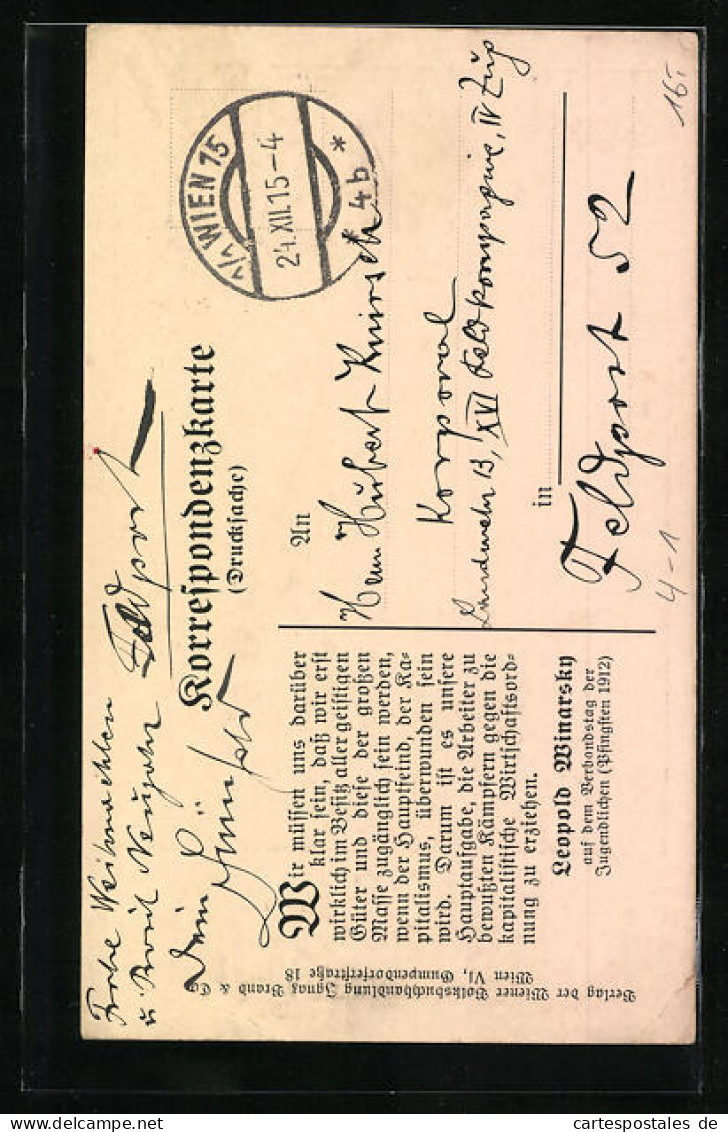 Frohe Weihnachten
u. Prosit Neujahr Feldpost
Dein
Korrespondenzkarte
(Drucksache)
1/1 WIEN 75
24.XII.15-4
* 4b *
An
Herrn Hubert
Korporal
Landwehr 13, XVI Feldkompagnie, IV Zug
in
Feldpost 52
4-1
16.-
Wir müssen uns darüber
klar sein, daß wir erst
wirklich im Besitz aller geistigen
Güter und diese der großen
Masse zugänglich sein werden,
wenn der Hauptfeind, der Ka-
pitalismus, überwunden sein
wird. Darum ist es unsere
Hauptaufgabe, die Arbeiter zu
bewußten Kämpfern gegen die
kapitalistische Wirtschaftsord-
nung zu erziehen.
Leopold Winarsky
auf dem Verbandstag der
Jugendlichen (Pfingsten 1912)
Verlag der Wiener Volksbuchhandlung Ignaz Brand & Co.
Wien VI, Gumpendorferstraße 18
© oldthing.de
cartespostales.de